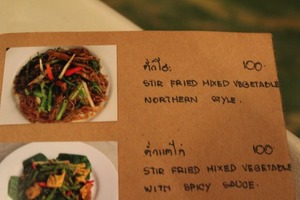 100.
STIR FRIED MIXED VEGETABLE
NORTHERN STYLE.
ตำแตไก่ 100
STIR FRIED MIXED VEGETABLE
WITH SPICY SAUCE.